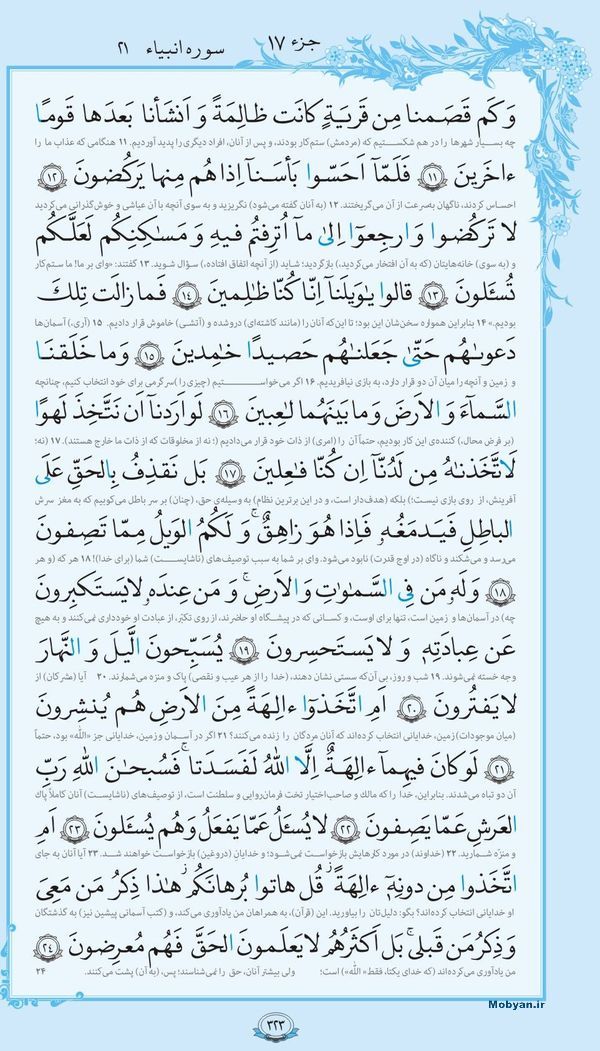 جزء ۱۷
سوره انبیاء ۲۱
وَ كَم قَصَمنا مِن قَریَةٍ كانَت ظالِمَةً وَ اَنشَأنا بَعدَها قَومًا
چه بسیار شهرها را در هم شکستیم که (مردمش) ستم‌کار بودند، و پس از آنان، افراد دیگری را پدید آوردیم. ۱۱ هنگامی که عذاب ما را
ءاخَرینَ ۱۱ فَلَمّآ اَحَسّوا بَأسَنآ اِذا هُم مِنها یَركُضونَ ۱۲
احساس کردند، ناگهان به‌سرعت از آن می‌گریختند. ۱۲ (به آنان گفته می‌شود) نگریزید و به سوی آنچه با آن عیاشی و خوش‌گذرانی می‌کردید
لا تَركُضوا وَ ارجِعوٓا اِلىٰ مآ اُترِفتُم فیهِ وَ مَساكِنِكُم لَعَلَّكُم
و (به سوی) خانه‌هایتان (که به آن افتخار می‌کردید)، بازگردید؛ شاید (از آنچه اتفاق افتاده،) سؤال شوید. ۱۳ گفتند: «وای بر ما! ما ستم‌کار
تُسـَٔلونَ ۱۳ قالوا یٰوَیلَنآ اِنّا كُنّا ظٰلِمینَ ۱۴ فَما زالَت تِلكَ
بودیم.» ۱۴ بنابراین همواره سخن‌شان این بود؛ تا این‌که آنان را (مانند کاشته‌ای) دروشده و (آتشی) خاموش قرار دادیم. ۱۵ (آری،) آسمان‌ها
دَعوىٰهُم حَتّىٰ جَعَلنٰهُم حَصیدًا خٰمِدینَ ۱۵ وَ ما خَلَقنَا
و زمین و آنچه را میان آن دو قرار دارد، به بازی نیافریدیم. ۱۶ اگر می‌خواستیم (چیزی را) سرگرمی برای خود انتخاب کنیم، چنانچه
السَّمآءَ وَ الاَرضَ وَ ما بَینَهُما لٰعِبینَ ۱۶ لَو اَرَدنآ اَن نَتَّخِذَ لَهوًا
(بر فرض محال،) کننده‌ی این کار بودیم، حتماً آن را (امری) از ذات خود قرار می‌دادیم (؛ نه از مخلوقات که از ذات ما خارج هستند). ۱۷ (نه؛
لَاتَّخَذنٰهُ مِن لَدُنّآ اِن كُنّا فٰعِلینَ ۱۷ بَل نَقذِفُ بِالحَقِّ عَلَى
آفرینش، از روی بازی نیست؛) بلکه (هدف‌دار است، و در این برترین نظام) به وسیله‌ی حق، (چنان) بر سر باطل می‌کوبیم که به مغز سرش
الباطِلِ فَیَدمَغُهو فَاِذا هُوَ زاهِقٌ وَ لَكُمُ الوَیلُ مِمّا تَصِفونَ
می‌رسد و می‌شکند و ناگاه (در اوج قدرت) نابود می‌شود. وای بر شما به سبب توصیف‌های (ناشایست) شما (برای خدا)! ۱۸ هر که (و هر
۱۸ وَ لَهو مَن فِی السَّمٰوٰتِ وَ الاَرضِ وَ مَن عِندَهو لا یَستَكبِرونَ
چه) در آسمان‌ها و زمین است، تنها برای اوست، و کسانی که در پیشگاه او حاضرند، از روی تکبّر، از عبادت او خودداری نمی‌کنند و به هیچ
عَن عِبادَتِهٖ وَ لا یَستَحسِرونَ ۱۹ یُسَبِّحونَ الَّیلَ وَ النَّهارَ
وجه خسته نمی‌شوند. ۱۹ شب و روز، بی آن‌که سستی نشان دهند، (خدا را از هر عیب و نقصی) پاک و منزه می‌شمارند. ۲۰ آیا (مشرکان از
لا یَفتُرونَ ۲۰ اَمِ اتَّخَذوٓا ءالِهَةً مِنَ الاَرضِ هُم یُنشِرونَ
(میان موجودات) زمین، خدایانی انتخاب کرده‌اند که آنان مردگان را زنده می‌کنند؟ ۲۱ اگر در آسمان و زمین، خدایانی جز «الله» بود، حتماً
۲۱ لَو كانَ فیهِمآ ءالِهَةٌ اِلَّا اللهُ لَفَسَدَتا فَسُبحٰنَ اللهِ رَبِّ
آن دو تباه می‌شدند. بنابراین، خدا را که مالک و صاحب‌اختیار تخت فرمان‌روایی و سلطنت است، از توصیف‌های (ناشایست) آنان کاملاً پاک
العَرشِ عَمّا یَصِفونَ ۲۲ لا یُسـَٔلُ عَمّا یَفعَلُ وَ هُم یُسـَٔلونَ ۲۳ اَمِ
و منزّه شمارید. ۲۲ (خداوند) در مورد کارهایش بازخواست نمی‌شود؛ و خدایانِ (دروغین) بازخواست خواهند شد. ۲۳ آیا آنان به جای
اتَّخَذوا مِن دونِهٖٓ ءالِهَةً قُل هاتوا بُرهانَكُم هٰذا ذِكرُ مَن مَعِیَ
او خدایانی انتخاب کرده‌اند؟ بگو: دلیل‌تان را بیاورید. این (قرآن)، به همراهان من یادآوری می‌کند، و (کتب آسمانی پیشین نیز) به گذشتگان
وَ ذِكرُ مَن قَبلی بَل اَكثَرُهُم لا یَعلَمونَ الحَقَّ فَهُم مُعرِضونَ ۲۴
من یادآوری می‌کرده‌اند (که خدای یکتا، فقط «الله») است؛ ولی بیشتر آنان، حق را نمی‌شناسند؛ پس، (به آن) پشت می‌کنند. ۲۴
۳۲۳
Mobyan.ir